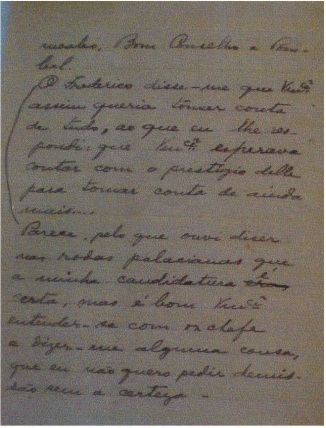 meales, Bom Conselho e Pom-
bal.
O Frederico disse-me que Vmcê
assim queria tomar conta
de tudo, ao que eu lhe res-
pondi: que Vmcê esperava
contar com o prestigio delle
para tomar conta de ainda
mais...
Parece, pelo que ouvi dizer
nas rodas palacianas que
a minha candidatura é
certa, mas é bom Vmcê
entender-se com o chefe
e dizer-me alguma cousa,
que eu não quero pedir demis-
são sem a certeza -